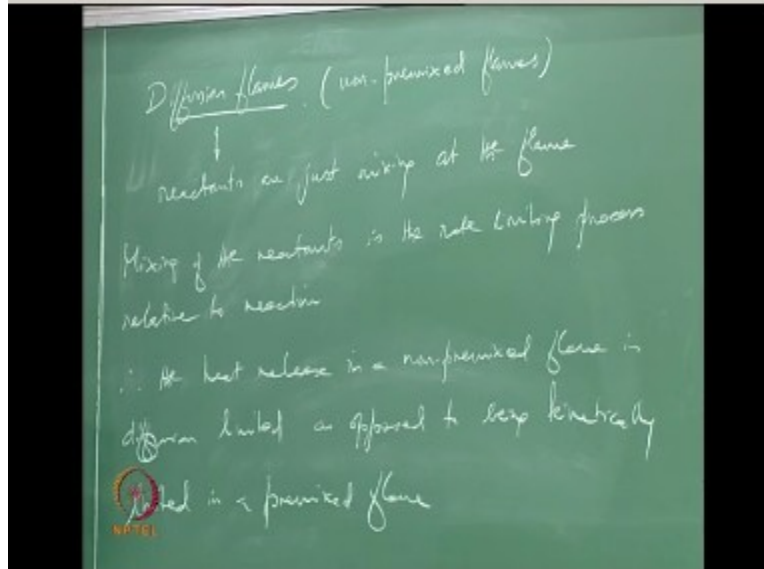 Diffusion flames. (non-premixed flames)
↓
reactants are just mixing at the flame
Mixing of the reactants is the rate limiting process
relative to reaction
∴ the heat release in a non-premixed flame is
diffusion limited as opposed to being kinetically
limited in a premixed flame
NPTEL